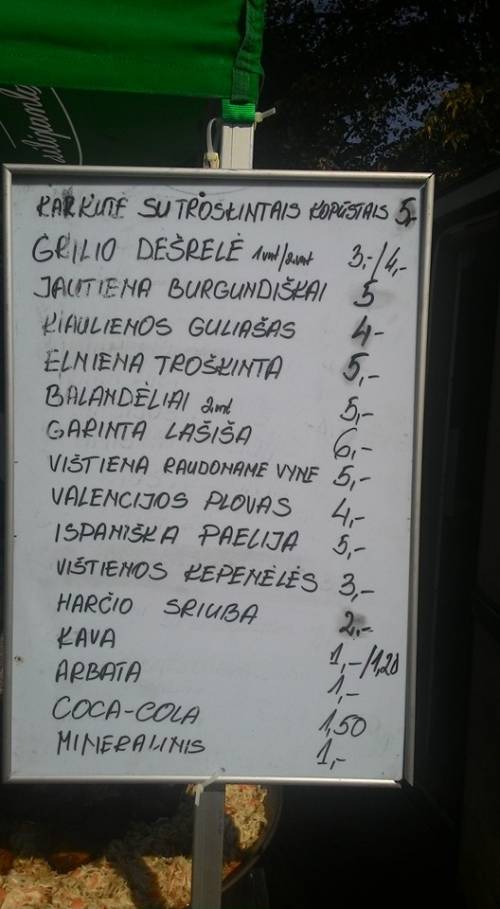 KARKUTĖ SU TROŠKINTAIS KOPŪSTAIS 5,-
GRILIO DEŠRELĖ 1vnt/2vnt 3,-/4,-
JAUTIENA BURGUNDIŠKAI 5
KIAULIENOS GULIAŠAS 4-
ELNIENA TROŠKINTA 5,-
BALANDĖLIAI 2vnt 5,-
GARINTA LAŠIŠA 6,-
VIŠTIENA RAUDONAME VYNE 5,-
VALENCIJOS PLOVAS 4,-
ISPANIŠKA PAELIJA 5,-
VIŠTIENOS KEPENĖLĖS 3,-
HARČIO SRIUBA 2,-
KAVA 1,-/1,20
ARBATA 1,-
COCA-COLA 1,50
MINERALINIS 1,-